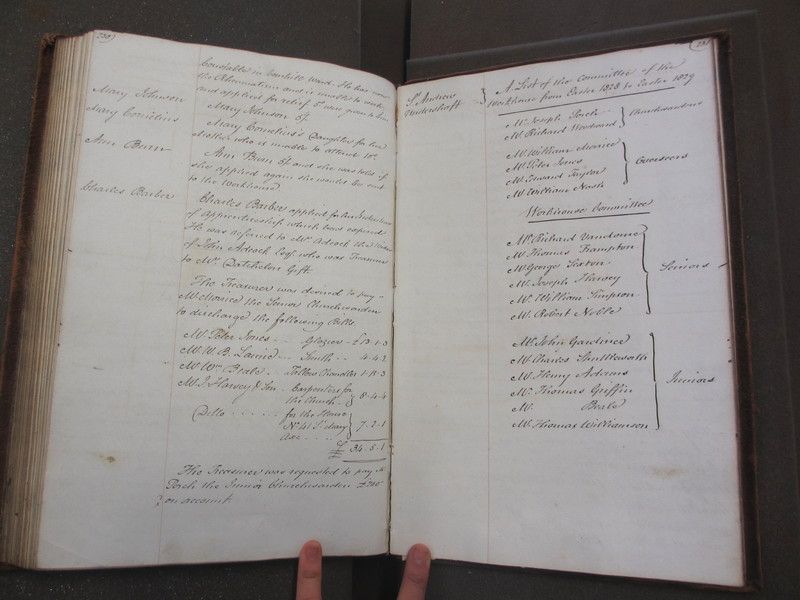 230
Constable in
Ward. He has now
and is unable to work
and applied for relief
Mary Johnson
Mary Johnson 5/.
Mary Cornelius
Mary Cornelius's Daughter for her
Mother who is unable to attend
Ann Bunn
Ann Bunn 5/. and she was told if
she applied again she would be sent
to the Workhouse
Charles Barber
Charles Barber applied for his Indentures
of Apprenticeship which had expired
He was referred to Mr. Adcock the
of John Adcock Esqr. who was Treasurer
to Mr. Gift
The Treasurer was desired to pay
the Senior Churchwarden
to discharge the following Bills
Mr. Peter Jones . . Glazier . . £13.1.3
Mr. W. B. . . Smith . . 4.4.2
Mr. Wm. Beale . Tallow Chandler 1.13.3
Mr. J. Harvey & Son . Carpenters for
the Church . . } 8.4.4
Ditto . . . . . for the House
No. 41 St. Mary
Axe . . . } 7.2.1
£ 34.5.1
The Treasurer was requested to pay Mr.
the Junior Churchwarden
on account
St. Andrew
Undershaft }
A List of the Committee of the
Workhouse from Easter 1828 to Easter 1829
Mr. Joseph
Mr. Richard } Churchwardens
Mr. William
Mr. Peter Jones
Mr. Edward Taylor
Mr. William Nash } Overseers
Workhouse Committee
Mr. Richard Vandome
Mr. Thomas Frampton
Mr. George Sexton
Mr. Joseph Harvey
Mr. William Simpson
Mr. Robert Noble } Seniors
Mr. John Gardiner
Mr. Charles Shuttleworth
Mr. Henry Adcock
Mr. Thomas Griffin
Mr. Beale
Mr. Thomas Williamson } Juniors